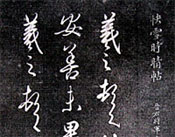 快雪時晴帖
羲之頓
安善未果
羲之頓